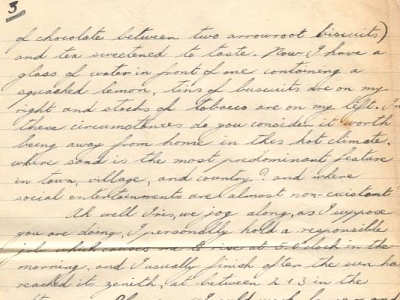 3
of chocolate between two arrowroot biscuits)
and tea sweetened to taste. Now I have a
glass of water in front of me containing a
squashed lemon, tins of buscuits are on my
right and stocks of tobacco are on my left. In
these circumstances do you consider it worth
being away from home in this hot climate.
where sand is the most predominant feature
in town, village, and country? and where
social entertainments are almost non-existant
Ah well Doris, we jog along, as I suppose
you are doing, I personally hold a responsible
job which causes me to rise at 5 o'clock in the
morning, and I usually finish after the sun has
reached its zenith, at between 2 & 3 in the